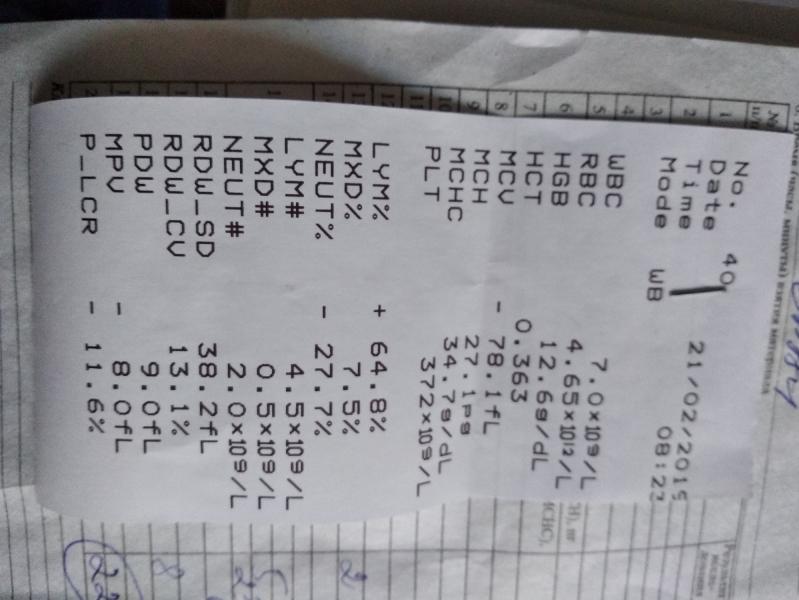 No. 40
Date 21/02/2015
Time 08:23
Mode WB
WBC 7.0×10^9/L
RBC 4.65×10^12/L
HGB 12.6g/dL
HCT 0.363
MCV - 78.1fL
MCH 27.1pg
MCHC 34.7g/dL
PLT 372×10^9/L
LYM% + 64.8%
MXD% 7.5%
NEUT% - 27.7%
LYM# 4.5×10^9/L
MXD# 0.5×10^9/L
NEUT# 2.0×10^9/L
RDW_SD 38.2fL
RDW_CV 13.1%
PDW 9.0fL
MPV - 8.0fL
P_LCR - 11.6%